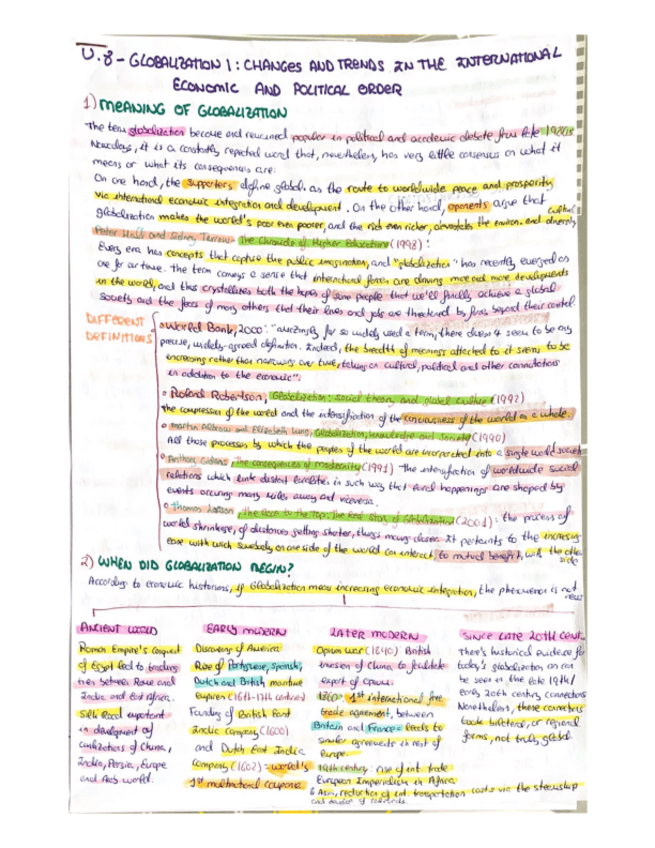 U.8 - GLOBALIZATION I: CHANGES AND TRENDS IN THE INTERNATIONAL
ECONOMIC AND POLITICAL ORDER
1) MEANING OF GLOBALIZATION
The term globalization became and remained popular in political and academic debate from late 1980s
Nowadays, it is a constantly repeated word that, nevertheless, has very little consensus on what it
means or what its consequences are:
On one hand, the supporters define globali. as the route to worldwide peace and prosperity
via international economic integration and development. On the other hand, oponents argue that
globalization makes the world's poor even poorer, and the rich even richer, devastates the environ. and cultural diversity
Peter Hall and Sidney Tarrow - The Chronicle of Higher Education (1998):
Every era has concepts that capture the public imagination, and "globalization" has recently emerged as
one for our time. The term conveys a sense that international forces are driving more and more developments
in the world, and thus crystallizes both the hopes of some people that we'll finally achieve a global
society and the fears of many others that their lives and jobs are threatened by forces beyond their control
DIFFERENT
DEFINITIONS
World Bank, 2000: "amazingly for so widely used a term, there doesn't seem to be any
precise, widely-agreed definition. Indeed, the breadth of meanings attached to it seems to be
increasing rather than narrowing over time, taking on cultural, political and other connotations
in addition to the economic".
Roland Robertson, Globalization: social theory and global culture (1992)
the compression of the world and the intensification of the conciousness of the world as a whole.
Martin Albrow and Elizabeth King, Globalization, knowledge and Society (1990)
All those processes by which the peoples of the world are incorporated into a single world society
Anthony Giddens, The consequences of modernity (1991) the intensification of worldwide social
relations which link distant localities in such way that local happenings are shaped by
events occuring many miles away and viceversa.
Thomas Larsson, The Race to the Top: The Real Story of Globalization (2001): the process of
world shrinkage, of distances getting shorter, things moving closer. It pertains to the increasing
ease with wich somebody on one side of the world can interact, to mutual benefit, with the other side
2) WHEN DID GLOBALIZATION BEGIN?
According to economic historians, if Globalization means increasing economic integration, the phenomenon is not new:
ANCIENT WORLD
Roman Empire's conquest
of Egypt led to trading
ties between Rome and
India and East Africa.
Silk Road important
in development of
civilizations of China,
India, Persia, Europe
and Arab world.
EARLY MODERN
Discovery of America
Rise of Portuguese, Spanish,
Dutch and British maritime
Empires (16th-17th centuries)
Founding of British East
India Company (1600)
and Dutch East India
Company (1602) = world's
1st multinational
LATER MODERN
Opium war (1840) British
invasion of China to facilitate
export of opium.
1860: 1st international free
trade agreement, between
Britain and France = leads to
similar agreements in rest of
Europe.
19th century: rise of int. trade
European Imperialism in Africa
& Asia, reduction of int. transportation costs via the steamship
and
SINCE LATE 20TH CENT.
There's historical evidence for
today's globalization as can
be seen in the late 19th/
early 20th century connections
Nonetheless, those connections
took bilateral, or regional
forms, not truly global.